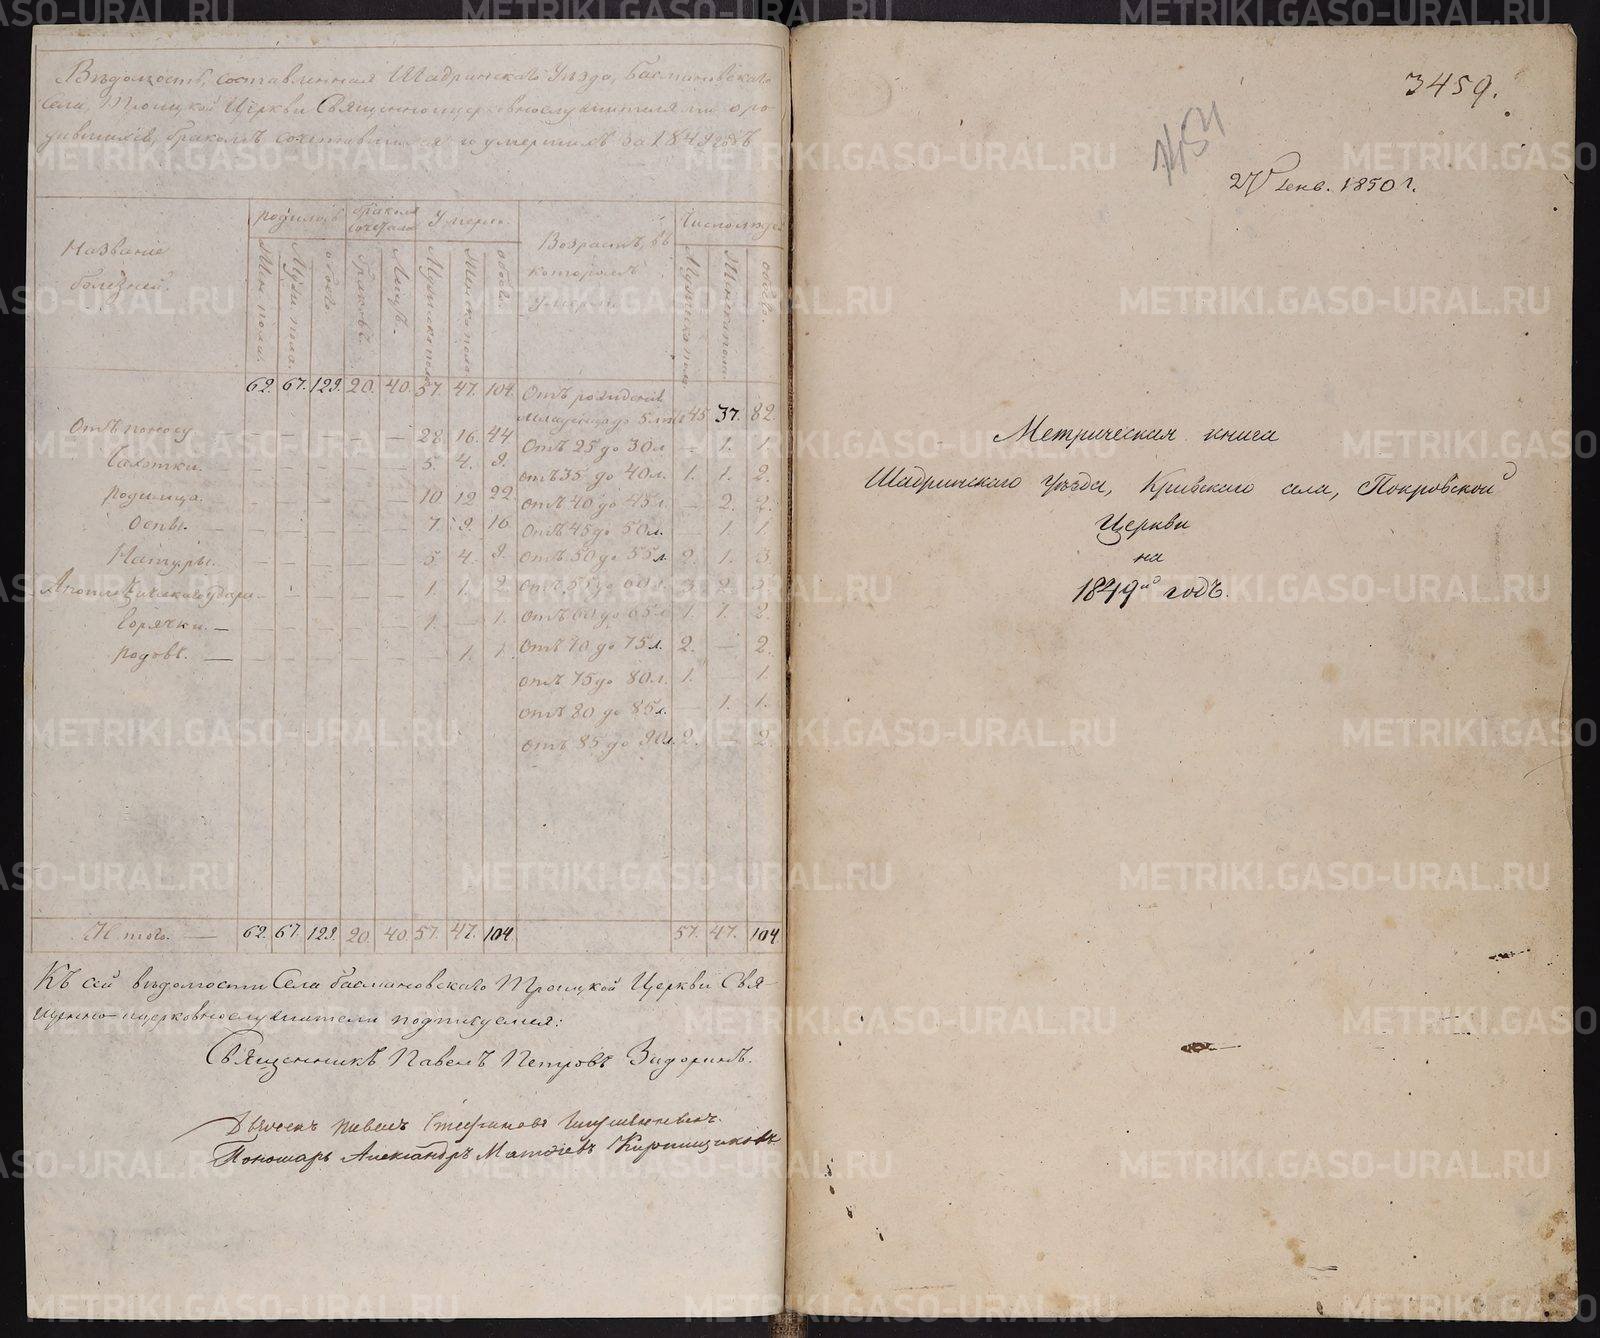 Вѣдомость, составленная Шадринскаго Уѣзда, Басмановскаго
Села, Троицкой Церкви Священноцерковнослужителями о ро-
дившихся, бракомъ сочетавшихся и умершихъ за 1849 годъ
Названіе болезней.
родилось
Жен. пола.
Мужс. пола.
обоего
бракомъ сочетало
браковъ.
Лицъ.
Умерло.
Мужеска пола
Женска пола
обоего.
Возрастъ, въ которомъ умерли.
Число лѣтъ
Мужеска пола
Женска пола
обоего.
62. 67. 129. 20. 40. 57. 47. 104. Отъ рожденія
младенца до 5 лѣтъ 45 37. 82
Отъ поносу — — — — — 28. 16. 44 Отъ 25 до 30 л — 1. 1.
Сахотки. — — — — — — 5. 4. 9. отъ 35 до 40 л. 1. 1. 2.
родимца. — — — — — 10 12 22. отъ 40 до 45 л. — 2. 2.
Оспы. — — — — — — 7 9. 16 Отъ 45 до 50 л. — 1. 1.
Натуры. — — — — — 5. 4. 9. Отъ 50 до 55 л. 2. 1. 3
Апоплексическаго удара — — — — — 1. 1. 2 Отъ 55 до 60 л. 3 2.
Горячки. — — — — — — 1. — 1. Отъ 60 до 65 л 1. 1. 2.
родовъ. — — — — — — — 1. 1. Отъ 70 до 75 л. 2. — 2.
отъ 75 до 80 л. 1. — 1.
отъ 80 до 85 л. — 1. 1.
отъ 85 до 90 л. 2. — 2.
Итого. — 62. 67. 129. 20. 40. 57. 47. 104. 57. 47. 104
Къ сей вѣдомости Села Басмановскаго Троицкой Церкви Свя-
щенно-церковнослужители подписуемся:
Священникъ Павелъ Петровъ Зидоринъ.
Дьячекъ Павелъ Стефановъ
Пономарь Александръ Матѳіевъ Кирпищиковъ
3459.
454
27 Генв. 1850 г.
Метрическая книга
Шадринскаго Уѣзда, Кривскаго села, Покровской
Церкви
на
1849й годъ.
METRIKI.GASO-URAL.RU